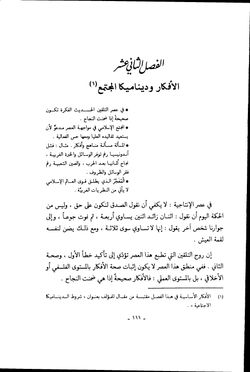 الفصل الثاني عشر
الأفكار وديناميكا المجتمع (١)
* في عصر التلقين الحديث الفكرة تكون
صحيحة إذا ضمنت النجاح .
* المجتمع الإسلامي في مواجهة العصر مدعو لأن
يستعيد تقاليده العليا ومعها حس الفعالية .
* المسألة مسألة مناهج وأفكار . مثال : فشل
أندونيسيا رغم توفر الوسائل والجودة التربة .
رغم فقر الوسائل .
* المفجّر الذي يطلق قوى العالم الإسلامي
لا يأتي من النظريات الغربية .
في عصر الإنتاجية : لا يكفي أن نقول الصدق لنكون على حق ، وليس من
الحكمة اليوم أن نقول : اثنان زائد اثنين يساوي أربعة ، ثم نموت جوعاً ، وإلى
جوارنا شخص آخر يقول : إنها تساوي سوى ثلاثة ، ومع ذلك يضمن لنفسه
لقمة العيش .
إن روح التلقين التي تطبع هذا العصر تؤدي إلى تأكيد خطأ الأول ، وصحة
الثاني . ففي منطق هذا العصر لا يكون إثبات صحة الأفكار بالمستوى الفلسفي أو
الأخلاقي ، بل بالمستوى العملي : فالأفكار صحيحة إذا هي ضمنت النجاح .
(١) الأفكار الأساسية في هذا الفصل مقتبسة من مقال للمؤلف بعنوان ، شروط الديناميكا
الاجتماعية .
- ١١١ -